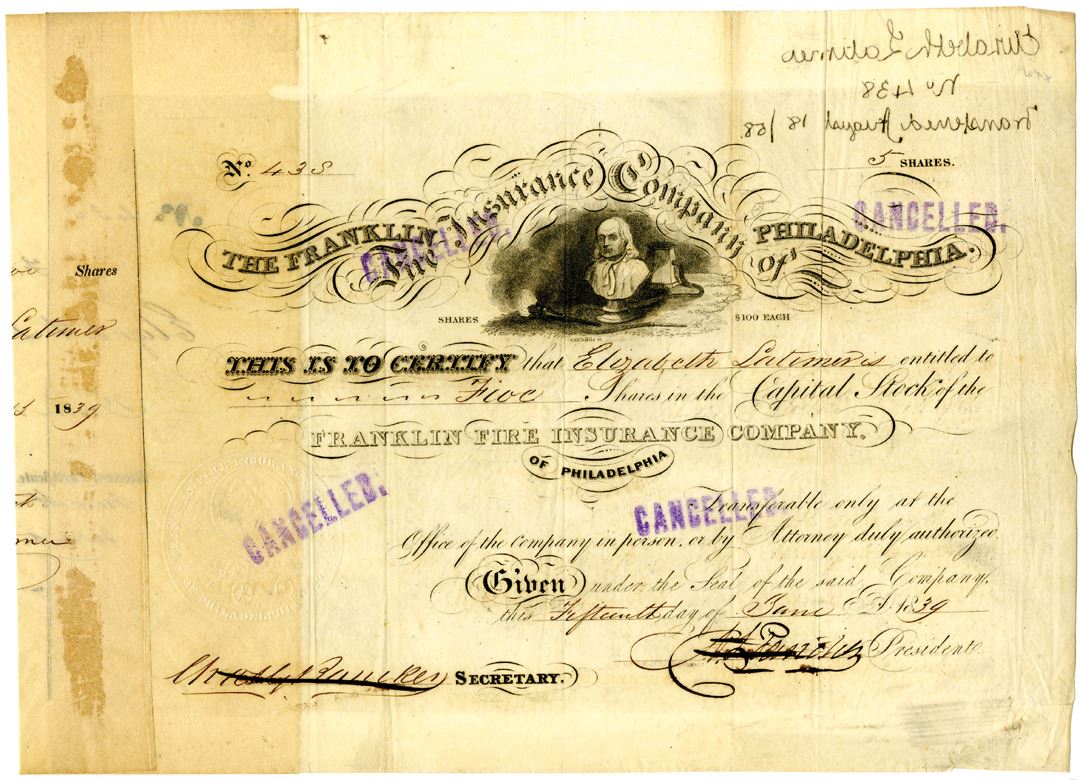 Elizabeth Latimer
No 438
Transferred August 18/08
No. 438
5 SHARES.
THE FRANKLIN Fire Insurance Company of PHILADELPHIA.
CANCELLED.
CANCELLED.
SHARES $100 EACH
Shares
Latimer
1839
THIS IS TO CERTIFY that Elizabeth Latimer is entitled to
Five Shares in the Capital Stock of the
FRANKLIN FIRE INSURANCE COMPANY.
OF PHILADELPHIA
CANCELLED.
CANCELLED.
Transferable only at the
Office of the Company in person, or by Attorney duly authorized.
Given under the Seal of the said Company,
this Fifteenth day of June A.D. 1839
President.
SECRETARY.